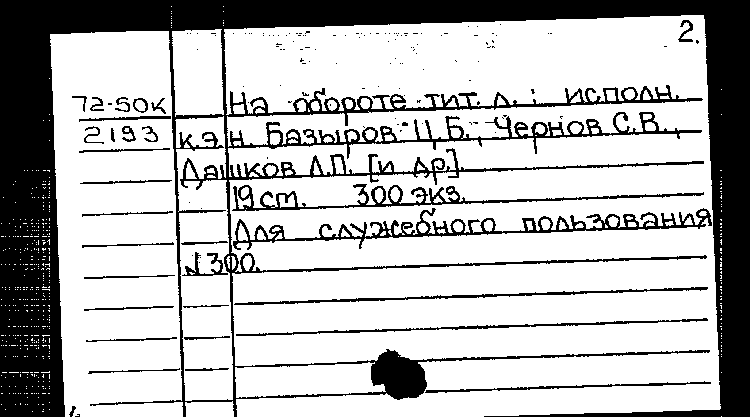 2.
72-50к На обороте тит. л. : исполн.
2193 к.э.н. Базыров Ц.Б., Чернов С.В.,
Дашков Л.П. [и др.].
19 ст. 300 экз.
Для служебного пользования
№300.